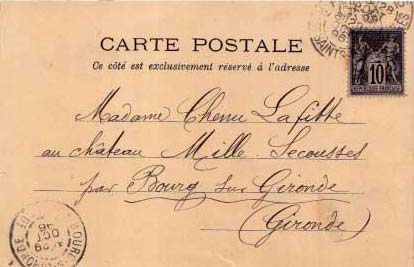 CARTE POSTALE
Ce côté est exclusivement réservé à l'adresse
10
Madame Chenu Lafitte
au château Mille-Secousses
par Bourg sur Gironde
(Gironde)